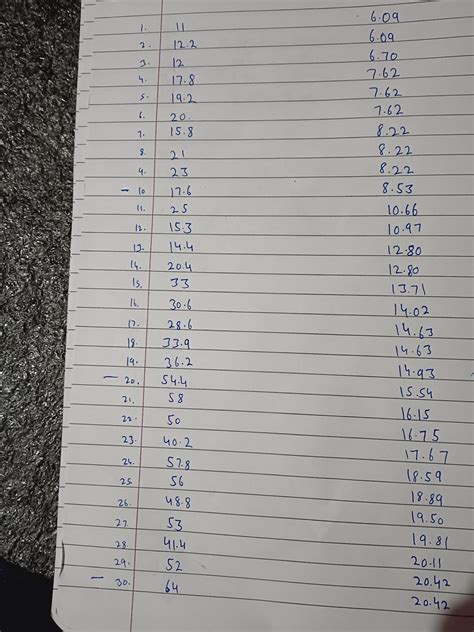 1. 11 6.09
2. 12.2 6.09
3. 12 6.70
4. 17.8 7.62
5. 19.2 7.62
6. 20. 7.62
7. 15.8 8.22
8. 21 8.22
9. 23 8.22
- 10 17.6 8.53
11. 25 10.66
12. 15.3 10.97
13. 14.4 12.80
14. 20.4 12.80
15. 33 13.71
16. 30.6 14.02
17. 28.6 14.63
18. 33.9 14.63
19. 36.2 14.93
- 20. 54.4 15.54
21. 58 16.15
22. 50 16.75
23. 40.2 17.67
24. 57.8 18.59
25. 56 18.89
26. 48.8 19.50
27. 53 19.81
28 41.4 20.11
29. 52 20.42
- 30. 64 20.42